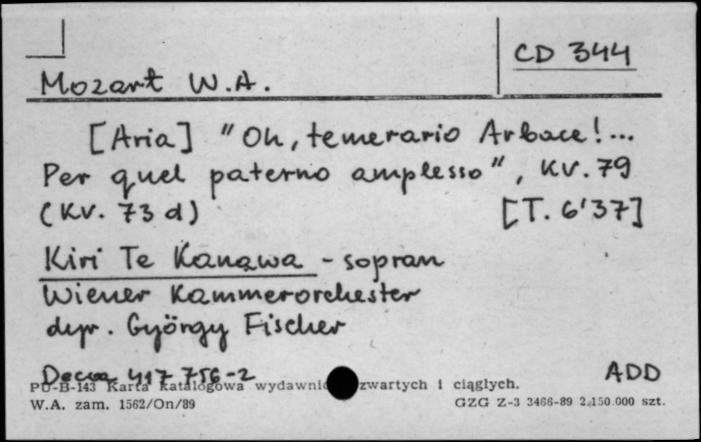 CD 344
Mozart W.A.
[Aria] "Oh, temerario Arbace!...
Per quel paterno amplesso", KV. 79
(KV. 73 d) [T. 6'37]
Kiri Te Kanawa - sopran
Wiener Kammerorchester
dyr. György Fischer
Decca 417 756-2 ADD
PU-B-143 Karta katalogowa wydawnic zwartych i ciągłych.
W.A. zam. 1562/On/89 GZG Z-3 3466-89 2.150.000 szt.